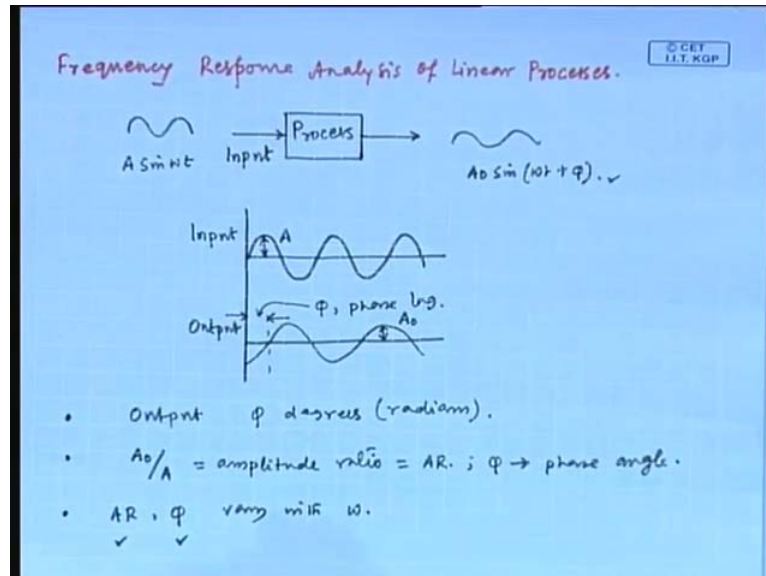 Frequency Response Analysis of Linear Processes.
© CET
I.I.T. KGP
A sin wt
Input
Process
A0 sin (wt + φ).
Input
A
φ, phase lag.
Output
A0
• Output φ degrees (radians).
• A0/A = amplitude ratio = AR. ; φ → phase angle.
• AR, φ vary with ω.